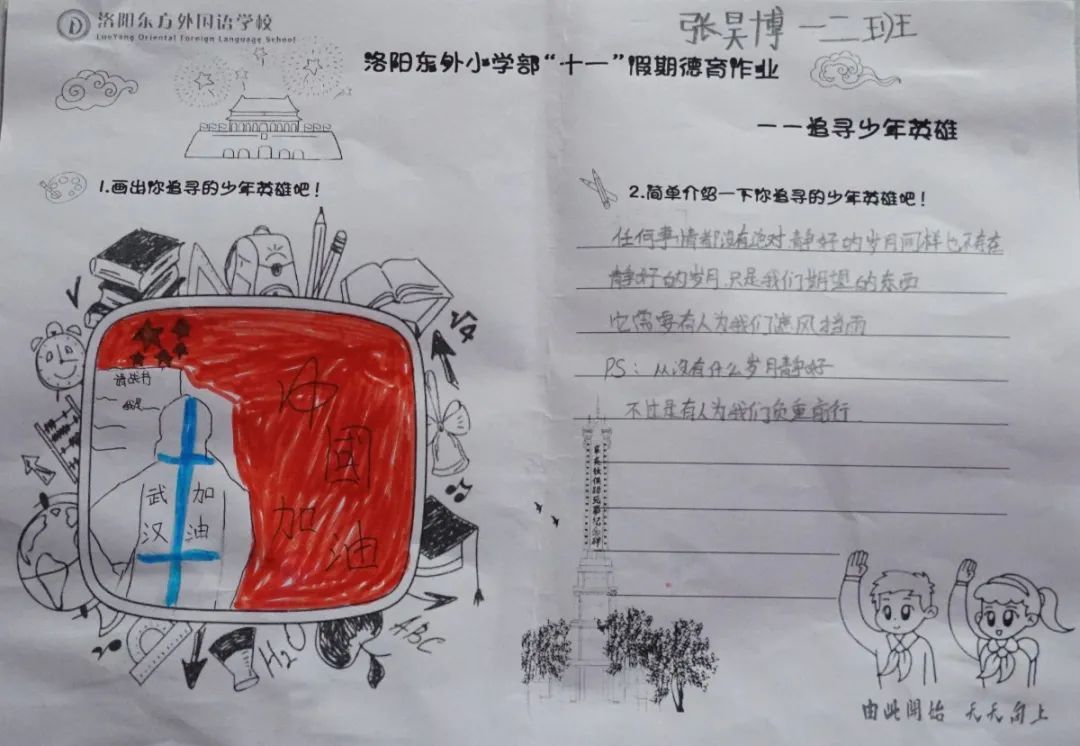 洛阳东方外国语学校
LuoYang Oriental Foreign Language School
张昊博 一二班
洛阳东外小学部“十一”假期德育作业
——追寻少年英雄
1.画出你追寻的少年英雄吧！
请战书
我是
武汉
加油
中國
加油
√4
ABC
H2O
2.简单介绍一下你追寻的少年英雄吧！
任何事情都没有绝对 静好的岁月同样也不存在
静好的岁月只是我们期望的东西
它需要有人为我们遮风挡雨
PS：从没有什么岁月静好
不过是有人为我们负重前行
由此开始 天天向上